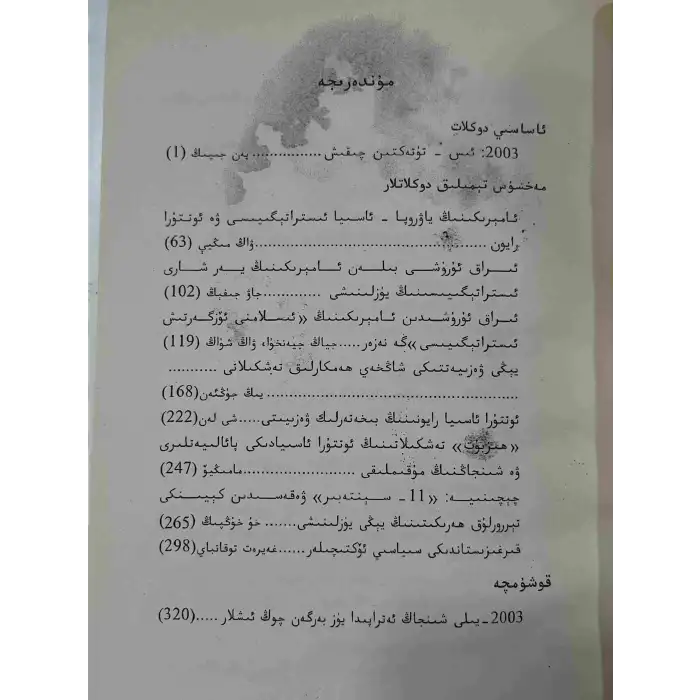 مۇندەرىجە
ئاساسىي دوكلات
2003: ئىس - تۈتەكتىن چىقىش ................ پەن جىيىڭ (1)
مەخسۇس تېمىلىق دوكلاتلار
ئامېرىكىنىڭ ياۋروپا - ئاسىيا ئىستراتېگىيىسى ۋە ئوتتۇرا
رايون ................................................ۋاڭ مىڭيې (63)
ئىراق ئۇرۇشى بىلەن ئامېرىكىنىڭ يەر شارى
ئىستراتېگىيىسىنىڭ يۈزلىنىشى .............جاۋ جىفىڭ (102)
ئىراق ئۇرۇشىدىن ئامېرىكىنىڭ «ئىسلامنى ئۆزگەرتىش
ئىستراتېگىيىسى»گە نەزەر.....جياڭ جيەنخۇا، ۋاڭ شۇاڭ (119)
يېڭى ۋەزىيەتتىكى شاڭخەي ھەمكارلىق تەشكىلاتى ...........
.................................................يىڭ جۇڭئەن(168)
ئوتتۇرا ئاسىيا رايونىنىڭ بىخەتەرلىك ۋەزىيىتى.....شى لەن(222)
«ھىزبۇت» تەشكىلاتىنىڭ ئوتتۇرا ئاسىيادىكى پائالىيەتلىرى
ۋە شىنجاڭنىڭ مۇقىملىقى .......................مامىڭيۆ (247)
چېچىنىيە: «11 - سېنتەبىر» ۋەقەسىدىن كېيىنكى
تېررورلۇق ھەرىكىتىنىڭ يېڭى يۈزلىنىشى....... خۇ خۇڭپىڭ (265)
قىرغىزىستاندىكى سىياسىي ئۆكتىچىلەر......غەيرەت توقانباي (298)
قوشۇمچە
2003-يىلى شىنجاڭ ئەتراپىدا يۈز بەرگەن چوڭ ئىشلار .....(320)